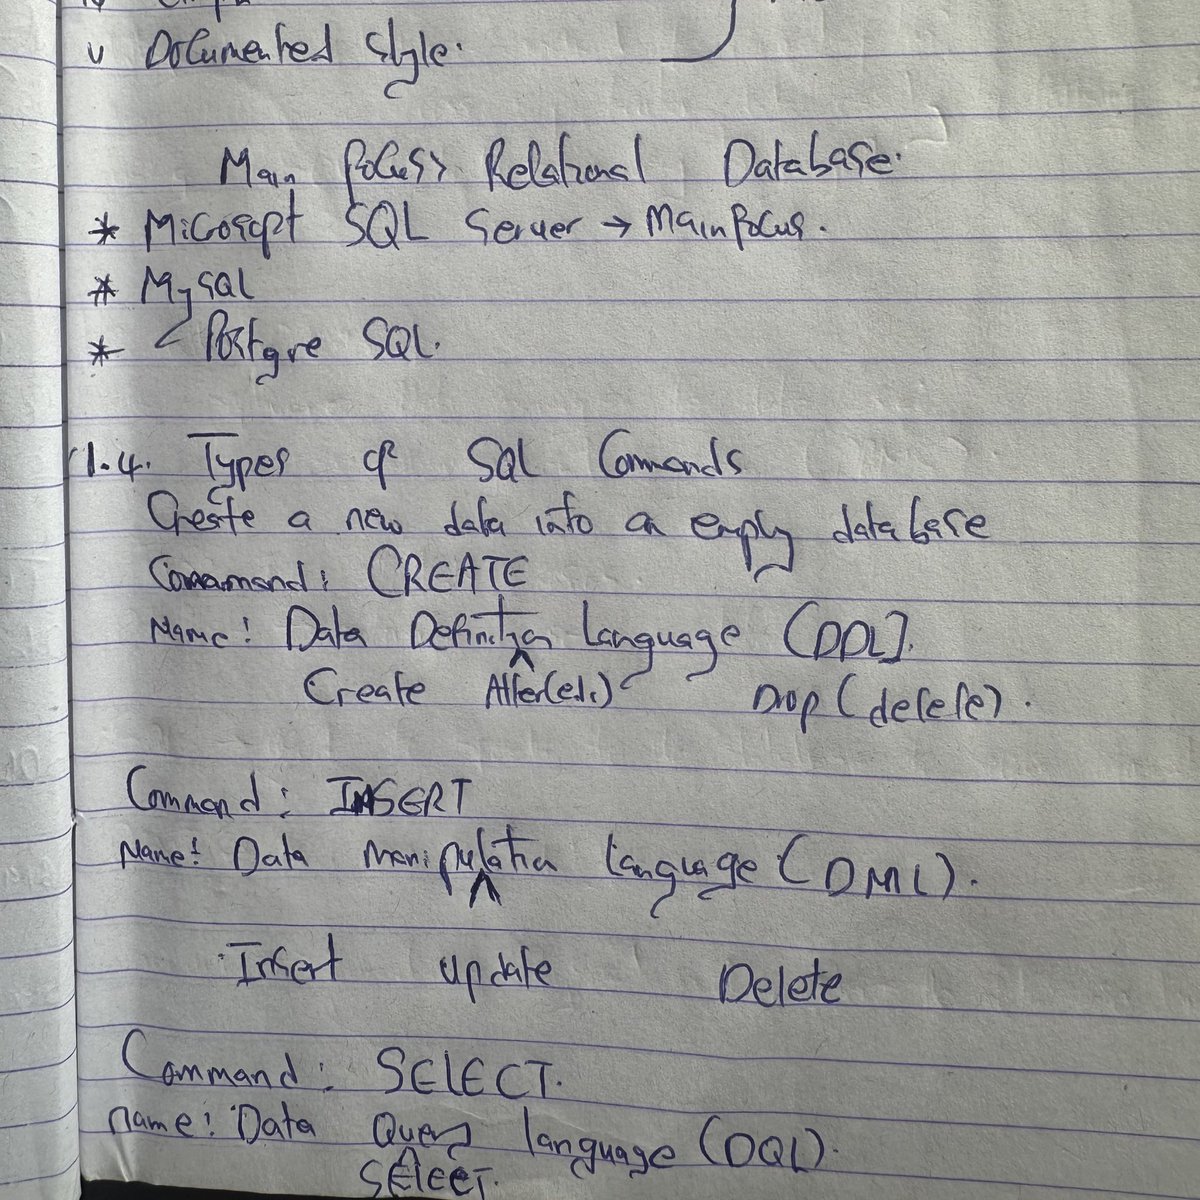 v Documented style.
Main focus> Relational Database.
* Micosopt SQL Server → Main focus.
* MySQL
* Postgre SQL.
1.4. Types of SQL Commands
Create a new data into an empty database
Command: CREATE
Name: Data Definition language (DDL).
Create Alter(edi) Drop (delete).
Command: INSERT
Name: Data Manipulation language (DML).
Insert update Delete
Command: SELECT.
name: Data Query language (DQL).
SELECT.